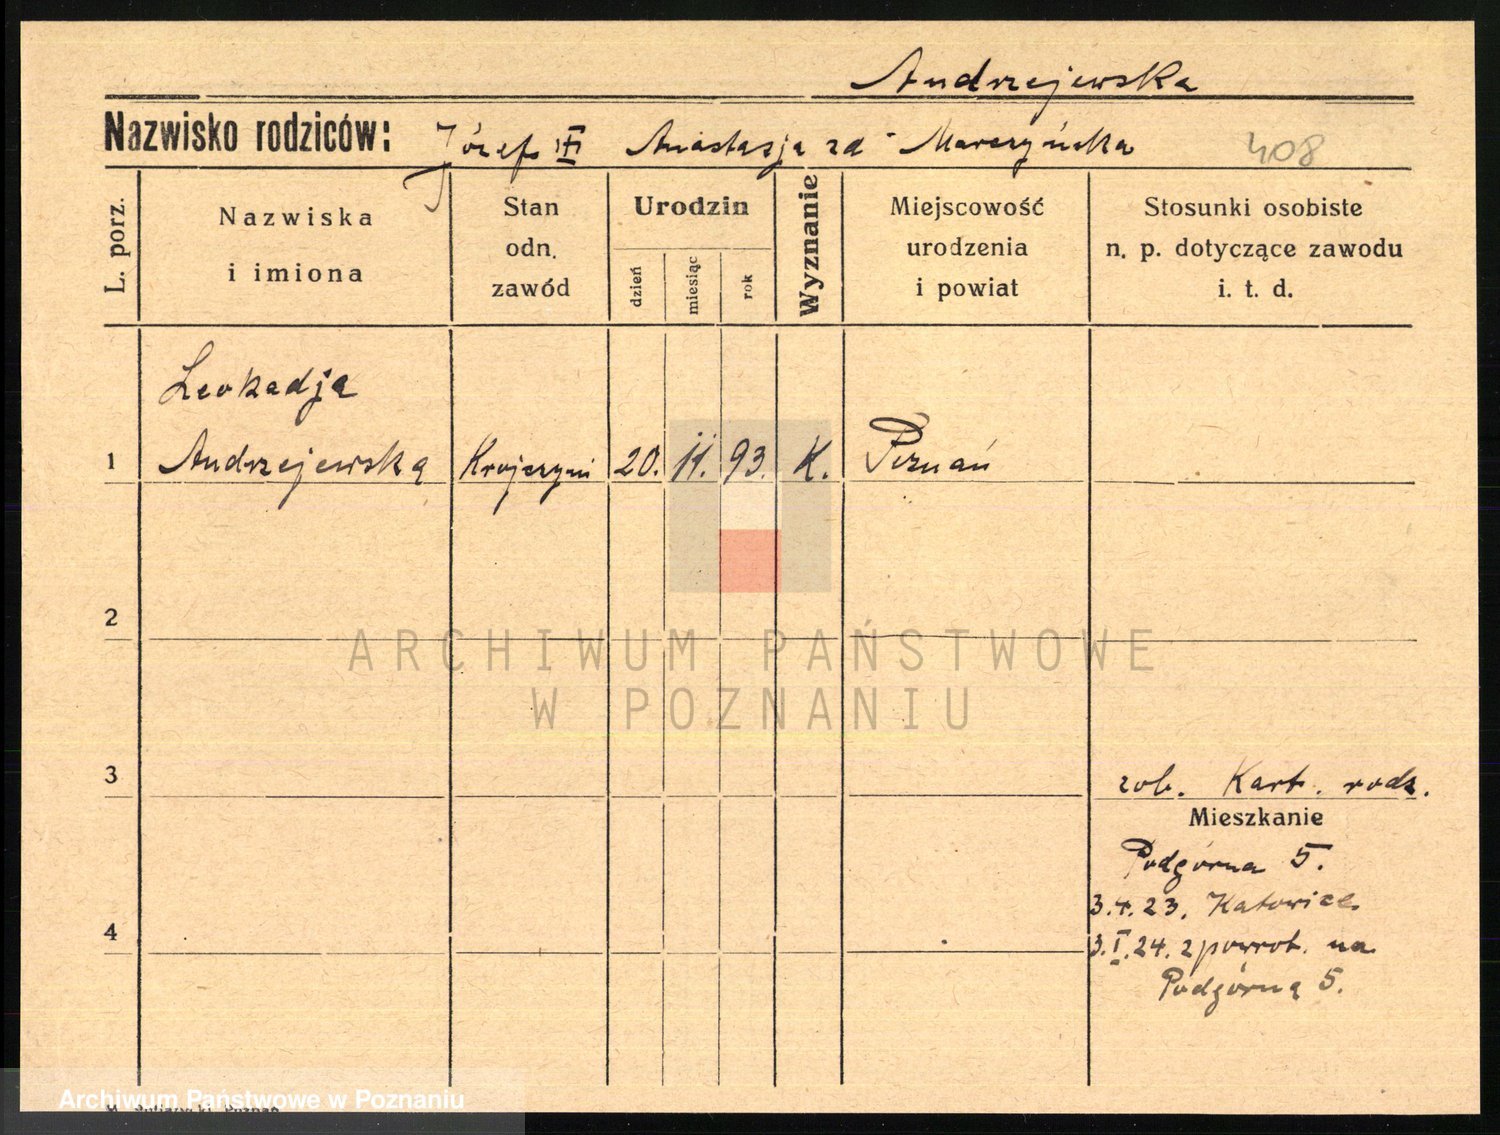 Andrzejewska
Nazwisko rodziców: Józef Anastazja zd Marczyńska 408
L. porz.
Nazwiska
i imiona
Stan
odn.
zawód
Urodzin
dzień
miesiąc
rok
Wyznanie
Miejscowość
urodzenia
i powiat
Stosunki osobiste
n. p. dotyczące zawodu
i. t. d.
Leokadja
1 Andrzejewska 20. 11. 93. K. Poznań
2
ARCHIWUM PAŃSTWOWE
W POZNANIU
3
zob. Kart. rodz.
Mieszkanie
Podgórna 5.
3.4.23. Katowice
4
3.I.24. z powrot. na
Podgórną 5.
Archiwum Państwowe w Poznaniu